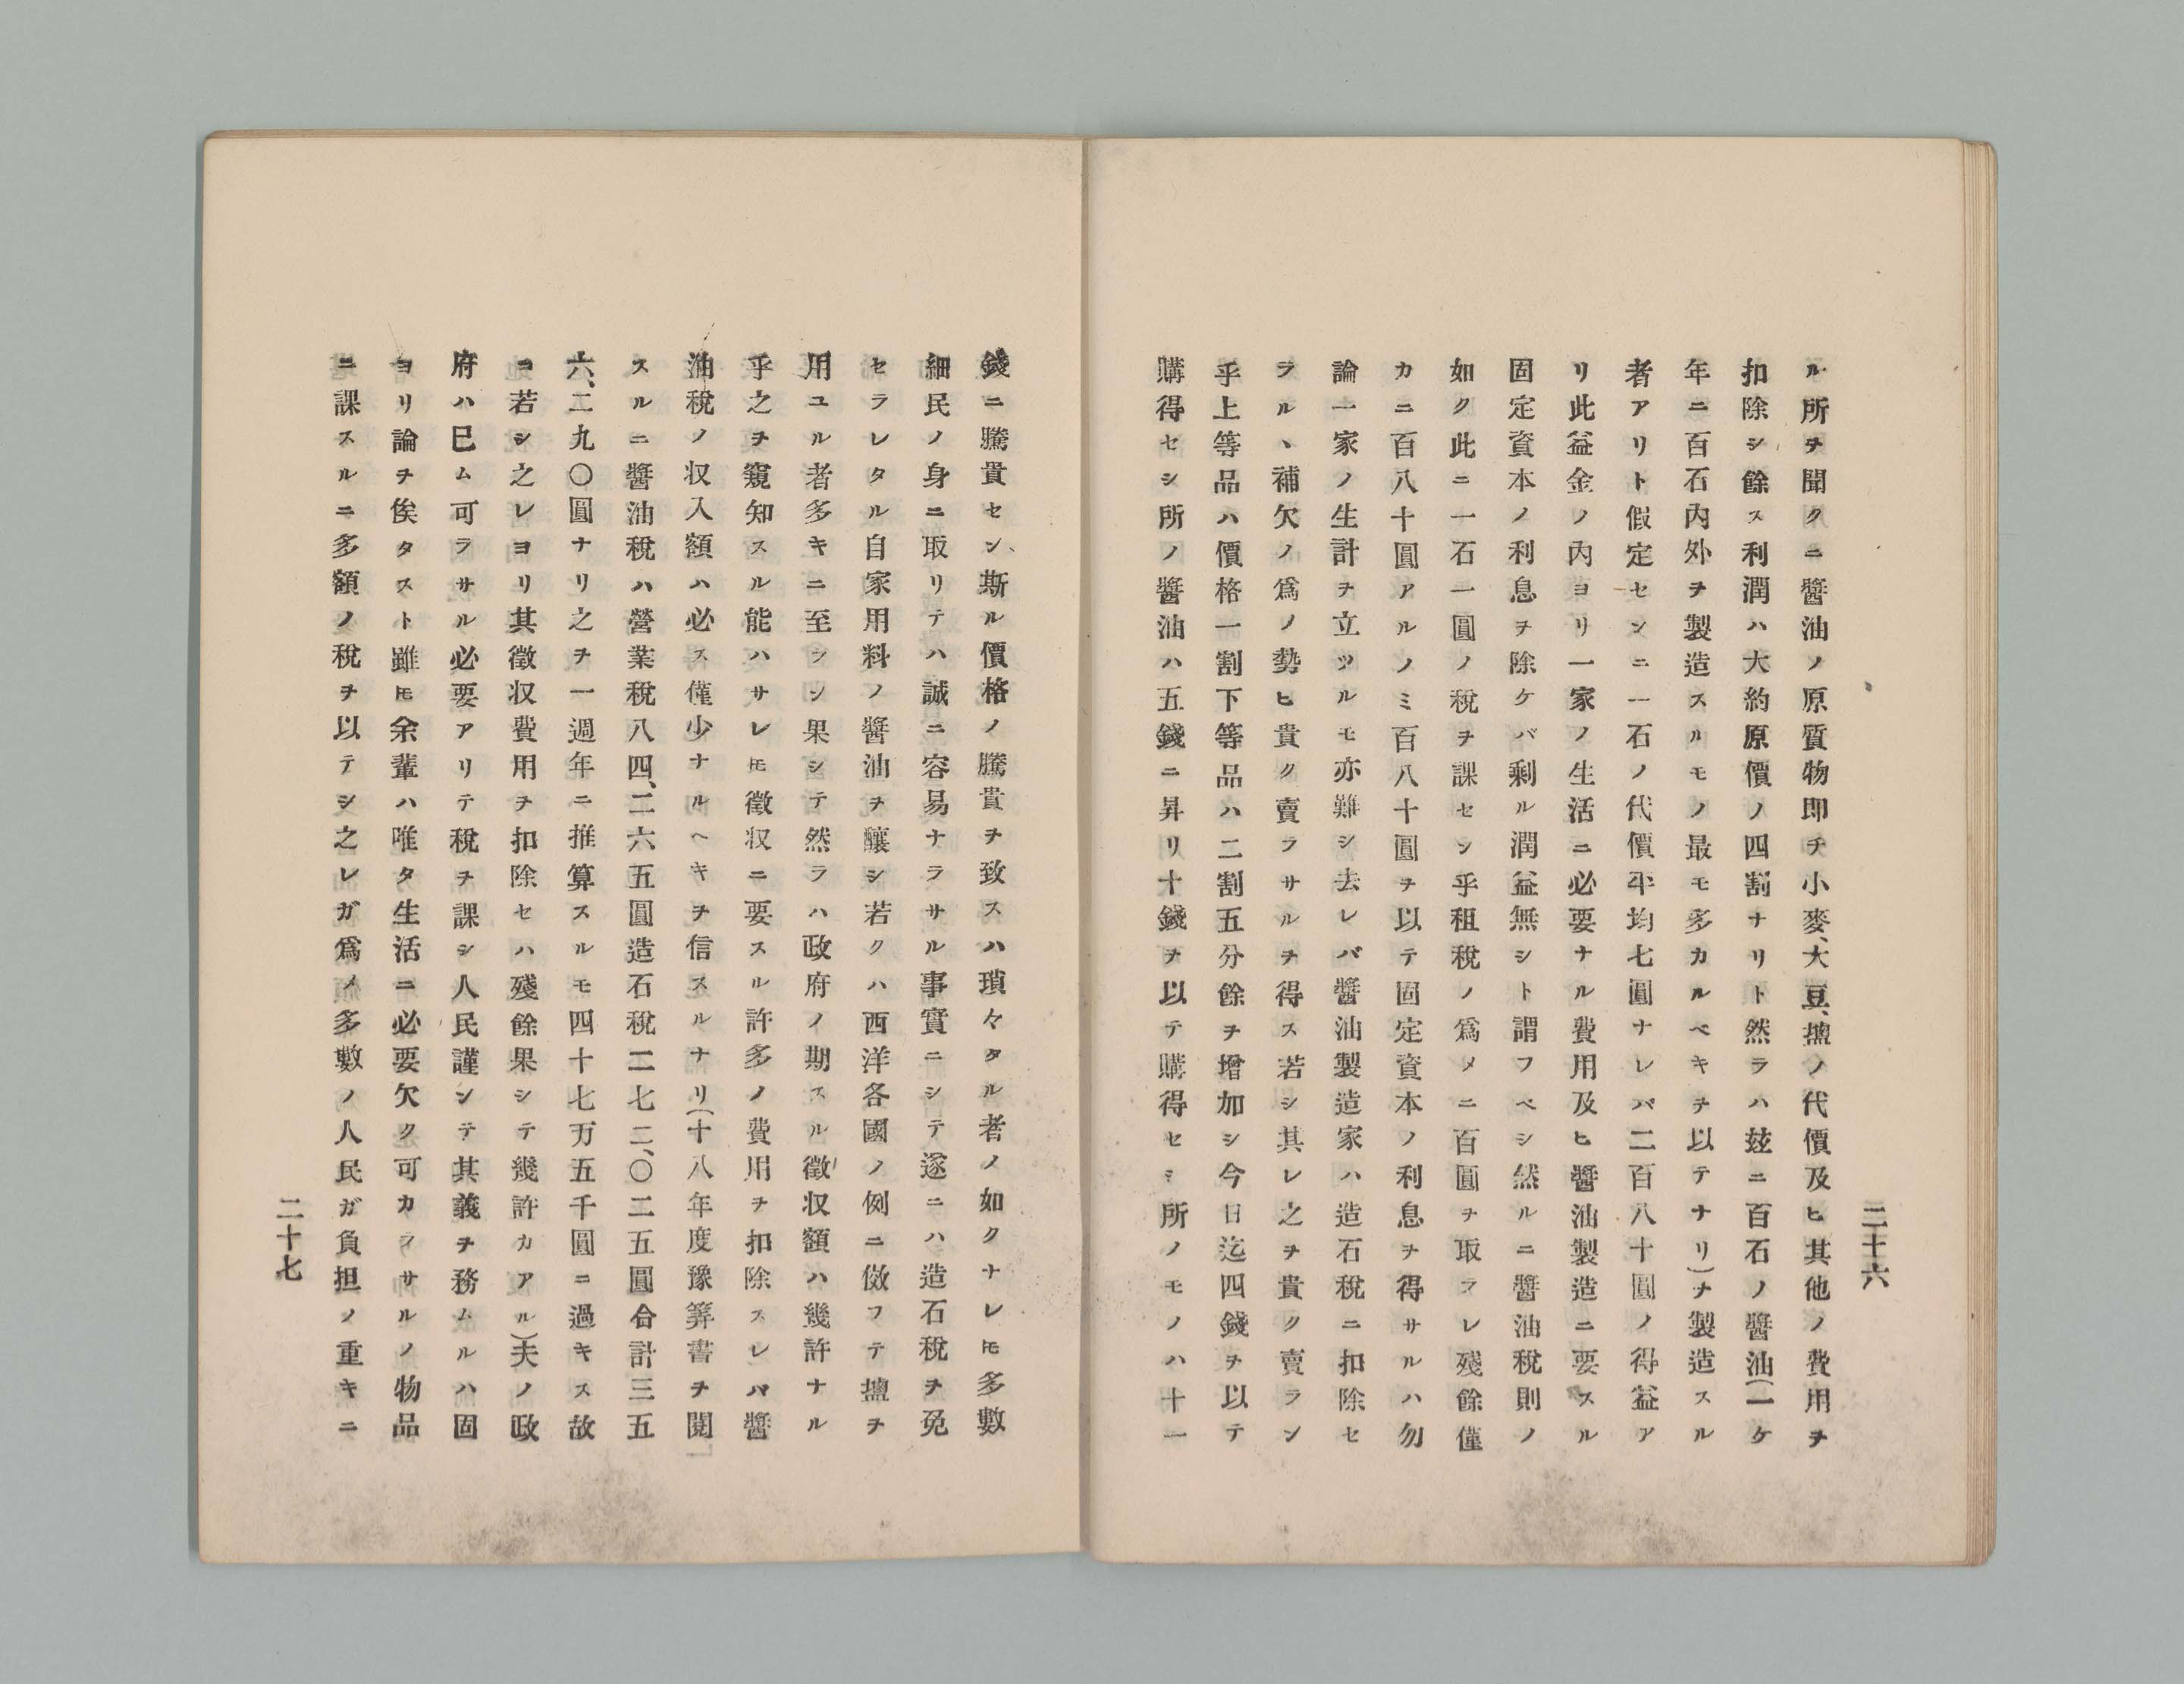 二十六
ル所ヲ聞クニ醬油ノ原質物即チ小麥、大豆、鹽ノ代價及ヒ其他ノ費用ヲ
扣除シ餘ス利潤ハ大約原價ノ四割ナリト然ラハ玆ニ百石ノ醬油(一ケ
年ニ百石內外ヲ製造スルモノ最モ多カルベキヲ以テナリ)ヲ製造スル
者アリト假定センニ一石ノ代價平均七圓ナレバ二百八十圓ノ得益ア
リ此益金ノ內ヨリ一家ノ生活ニ必要ナル費用及ヒ醬油製造ニ要スル
固定資本ノ利息ヲ除ケバ剩ル潤益無シト謂フベシ然ルニ醬油稅則ノ
如ク此ニ一石一圓ノ稅ヲ課セシ乎租稅ノ爲メニ百圓ヲ取ラレ殘餘僅
カニ百八十圓アルノミ百八十圓ヲ以テ固定資本ノ利息ヲ得サルハ勿
論一家ノ生計ヲ立ツルモ亦難シ去レバ醬油製造家ハ造石稅ニ扣除セ
ラル、補欠ノ爲ノ勢ヒ貴ク賣ラサルヲ得ス若シ其レ之ヲ貴ク賣ラン
乎上等品ハ價格一割下等品ハ二割五分餘ヲ增加シ今日迄四錢ヲ以テ
購得セシ所ノ醬油ハ五錢ニ昇リ十錢ヲ以テ購得セシ所ノモノハ十一
錢ニ騰貴セン、斯ル價格ノ騰貴ヲ致スハ瑣々タル者ノ如クナレ𪜈多數
細民ノ身ニ取リテハ誠ニ容易ナラサル事實ニシテ遂ニハ造石稅ヲ免
セラレタル自家用料ノ醬油ヲ釀シ若クハ西洋各國ノ例ニ傚フテ鹽ヲ
用ユル者多キニ至ラン果シテ然ラハ政府ノ期スル徵収額ハ幾許ナル
乎之ヲ窺知スル能ハサレ𪜈徵収ニ要スル許多ノ費用ヲ扣除スレバ醬
油稅ノ収入額ハ必ス僅少ナルヘキヲ信スルナリ(十八年度豫筭書ヲ閱
スルニ醬油稅ハ營業稅八四、二六五圓造石稅二七二、〇二五圓合計三五
六、二九〇圓ナリ之ヲ一週年ニ推算スルモ四十七万五千圓ニ過キス故
ニ若シ之レヨリ其徵収費用ヲ扣除セハ殘餘果シテ幾許カアル)夫ノ政
府ハ已ム可ラサル必要アリテ稅ヲ課シ人民謹ンテ其義ヲ務ムルハ固
ヨリ論ヲ俟タスト雖𪜈余輩ハ唯タ生活ニ必要欠ク可カラサルノ物品
ニ課スルニ多額ノ稅ヲ以テシ之レガ爲メ多數ノ人民ガ負担ノ重キニ
二十七